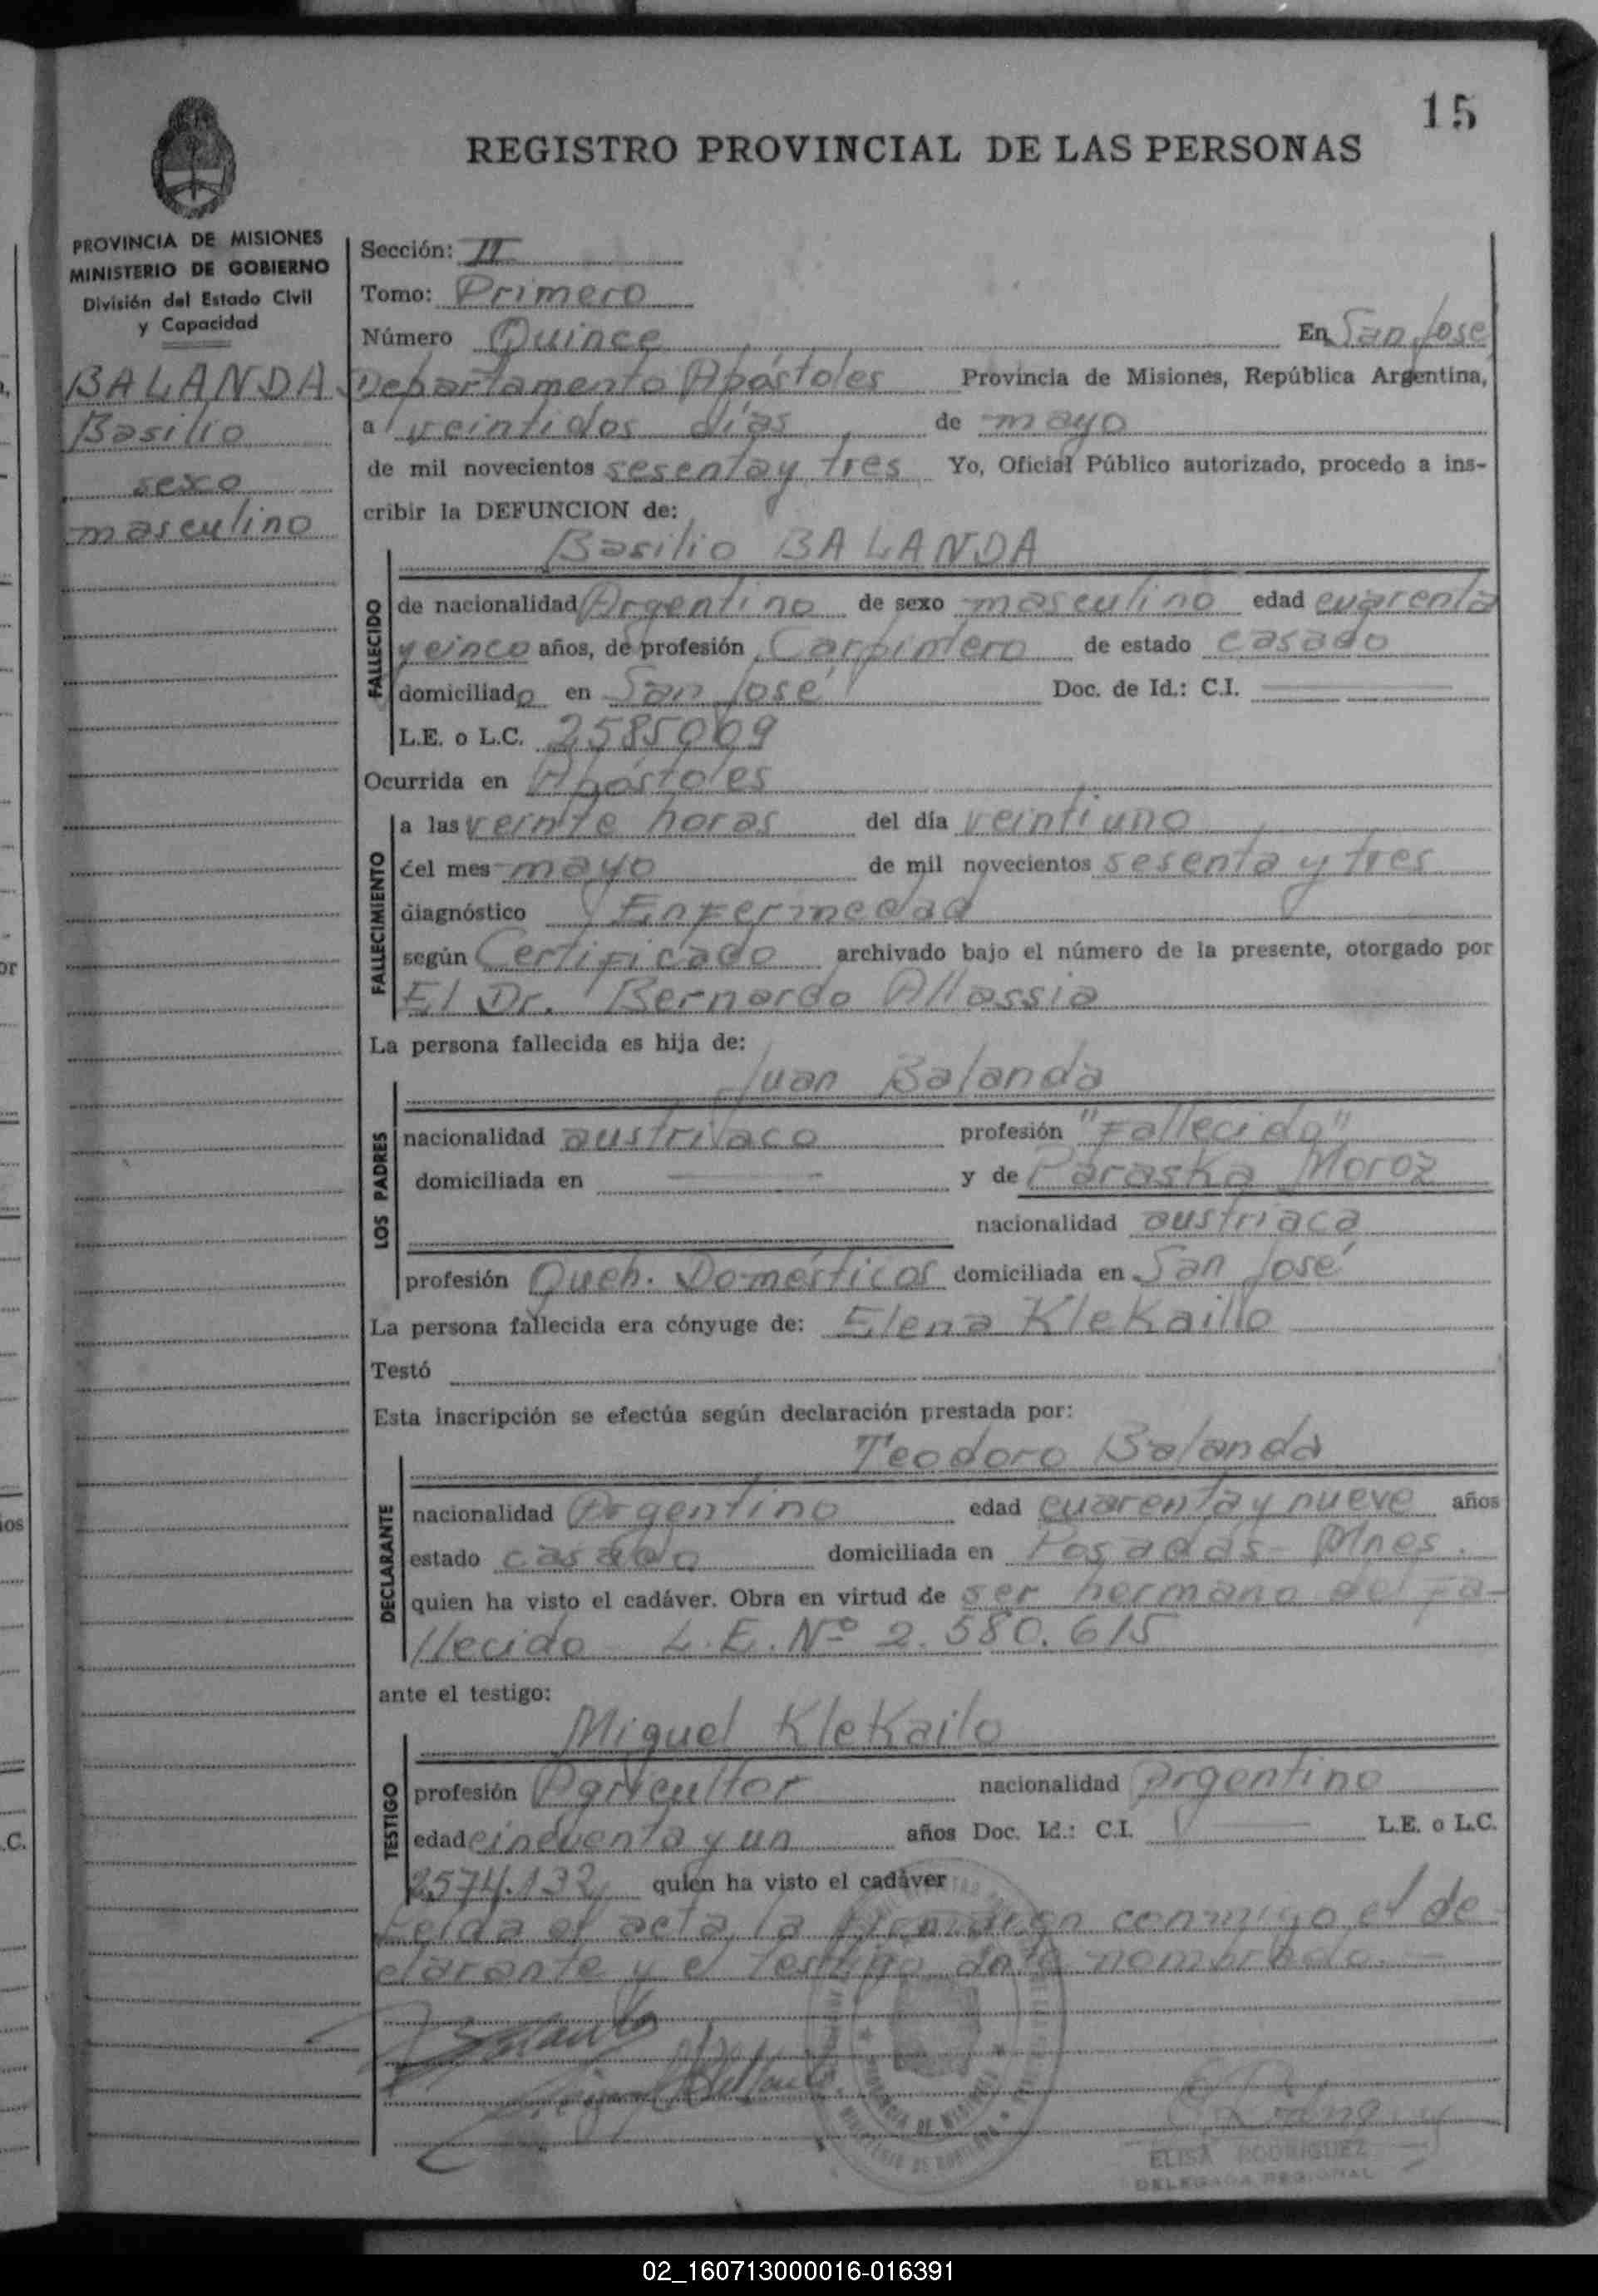 15
REGISTRO PROVINCIAL DE LAS PERSONAS
PROVINCIA DE MISIONES
MINISTERIO DE GOBIERNO
División del Estado Civil
y Capacidad
BALANDA
Basilio
sexo
masculino
Sección: II
Tomo: Primero
Número Quince En San José
Departamento Apóstoles Provincia de Misiones, República Argentina,
a veintidos días de mayo
de mil novecientos sesenta y tres Yo, Oficial Público autorizado, procedo a ins-
cribir la DEFUNCION de:
Basilio BALANDA
FALLECIDO
de nacionalidad Argentino de sexo masculino edad cuarenta
y cinco años, de profesión Carpintero de estado casado
domiciliado en San José Doc. de Id.: C.I.
L.E. o L.C. 2585009
Ocurrida en Apóstoles
FALLECIMIENTO
a las veinte horas del día veintiuno
del mes mayo de mil novecientos sesenta y tres
diagnóstico Enfermedad
según Certificado archivado bajo el número de la presente, otorgado por
El Dr. Bernardo Allassia
La persona fallecida es hija de:
Juan Balanda
LOS PADRES
nacionalidad austriaco profesión "Fallecido"
domiciliada en y de Paraska Moroz
nacionalidad austriaca
profesión Queh. Domésticos domiciliada en San José
La persona fallecida era cónyuge de: Elena Klekaillo
Testó
Esta inscripción se efectúa según declaración prestada por:
Teodoro Balanda
DECLARANTE
nacionalidad Argentino edad cuarenta y nueve años
estado casado domiciliada en Posadas - Mnes.
quien ha visto el cadáver. Obra en virtud de ser hermano del fa-
llecido L.E. Nº 2.580.615
ante el testigo:
Miguel Klekailo
TESTIGO
profesión Agricultor nacionalidad Argentino
edad cincuenta y un años Doc. Id.: C.I. L.E. o L.C.
2574.132 quien ha visto el cadáver
Leida el acta la firmaron conmigo el de
clarante y el testigo ante nombrado.-
ELISA RODRIGUEZ
DELEGADA REGIONAL
02_160713000016-016391